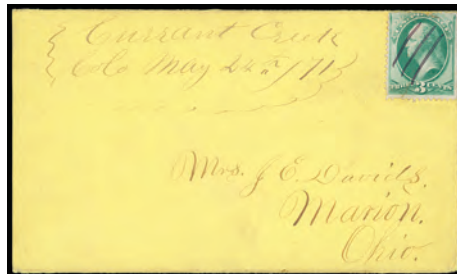 Currant Creek
Colo May 24th /71
3
Mrs. J. E. Davids.
Marion.
Ohio.